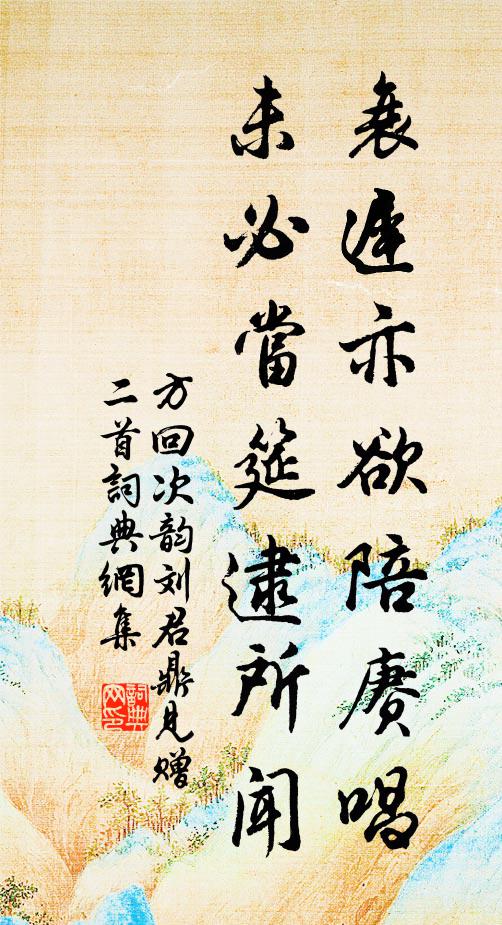 衰遲亦欲陪赓唱
未必當筵逮所聞
方回次韵刘君鼎见赠
二首詞典網集
詞典網印